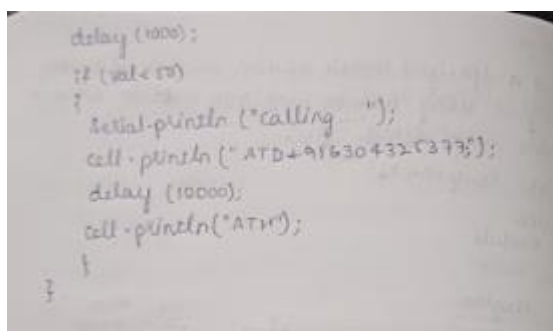 delay (1000);
if (val < 50)
{
serial.println ("calling....");
cell.println ("ATD+916304325377;");
delay (10000);
cell.println("ATH");
}
}